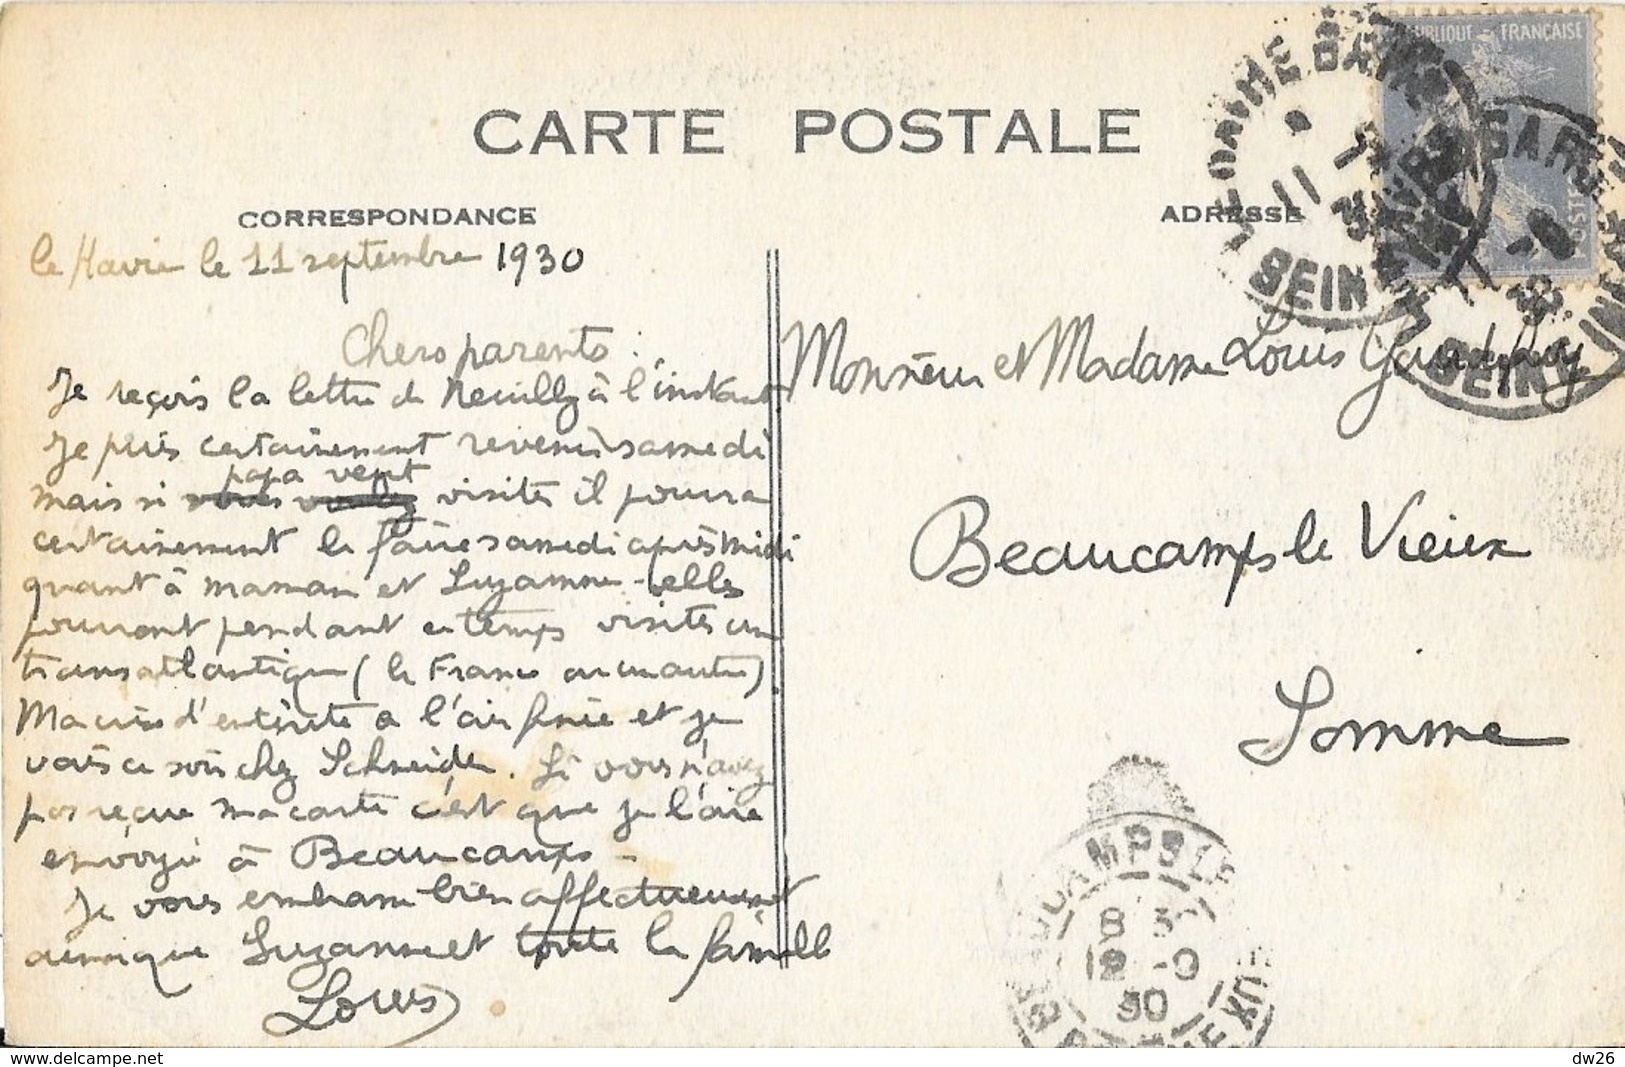 CARTE POSTALE
CORRESPONDANCE
ADRESSE
RÉPUBLIQUE FRANÇAISE
le Havre le 11 septembre 1930
Chers parents :
Je reçois la lettre de Neuilly à l'instant
Je puis certainement revenir samedi
papa veut
mais si vous voulez visiter il pourra
certainement le faire samedi après midi
quant à maman et Suzanne - elles
pourront pendant ce temps visiter un
transatlantique (le France ou un autre)
Ma d'entérite a l'air finie et je
vais ce soir chez Schneider. Si vous n'avez
pas reçue ma carte c'est que je l'aie
envoyé à Beaucamps -
Je vous embrasse bien affectueusement
ainsi que Suzanne et toute la famille
Louis
Monsieur et Madame Louis
Beaucamps le Vieux
Somme
BEAUCAMPS LE VIEUX
8 30
12 - 9
30
dw26
delcampe.net